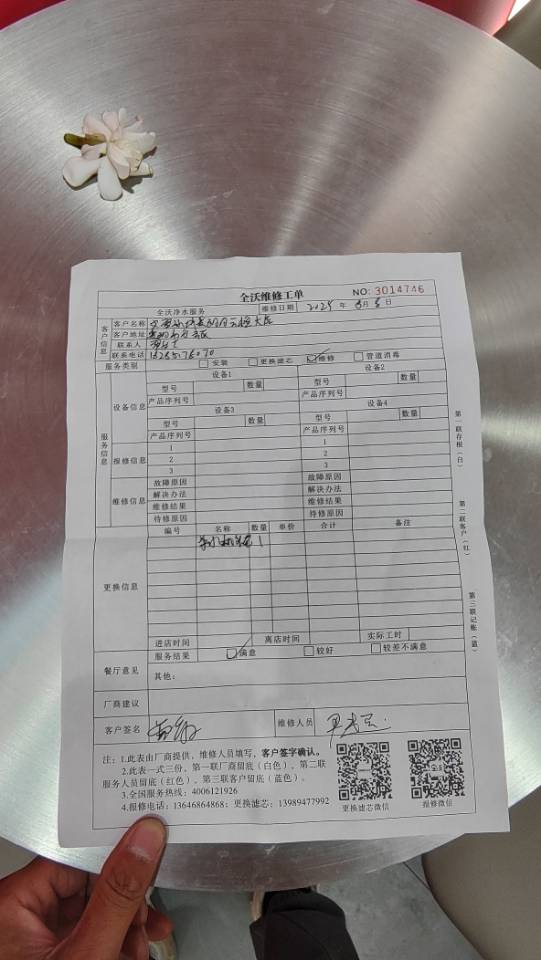 全沃维修工单
NO: 3014746
全沃净水服务 维修日期 2025 年 月 日
客户信息
客户名称
客户地址
联系人
联系电话
服务类别 安装 更换滤芯 维修 管道消毒
服务信息
设备信息
设备1 设备2
型号 数量 型号 数量
产品序列号 产品序列号
设备3 设备4
型号 数量 型号 数量
产品序列号 产品序列号
报修信息
1 1
2 2
3 3
维修信息
故障原因 故障原因
解决办法 解决办法
维修结果 维修结果
待修原因 待修原因
更换信息
编号 名称 数量 单价 合计 备注
1
进店时间 离店时间 实际工时
餐厅意见
服务结果 满意 较好 较差不满意
其他:
厂商建议
客户签名 维修人员
注: 1.此表由厂商提供,维修人员填写,客户签字确认。
2.此表一式三份,第一联厂商留底(白色)、第二联
服务人员留底(红色)、第三联客户留底(蓝色)。
3.全国服务热线: 4006121926
4.报修电话: 13646864868; 更换滤芯: 13989477992
更换滤芯微信 报修微信
第一联存根(白)
第二联客户(红)
第三联记账(蓝)